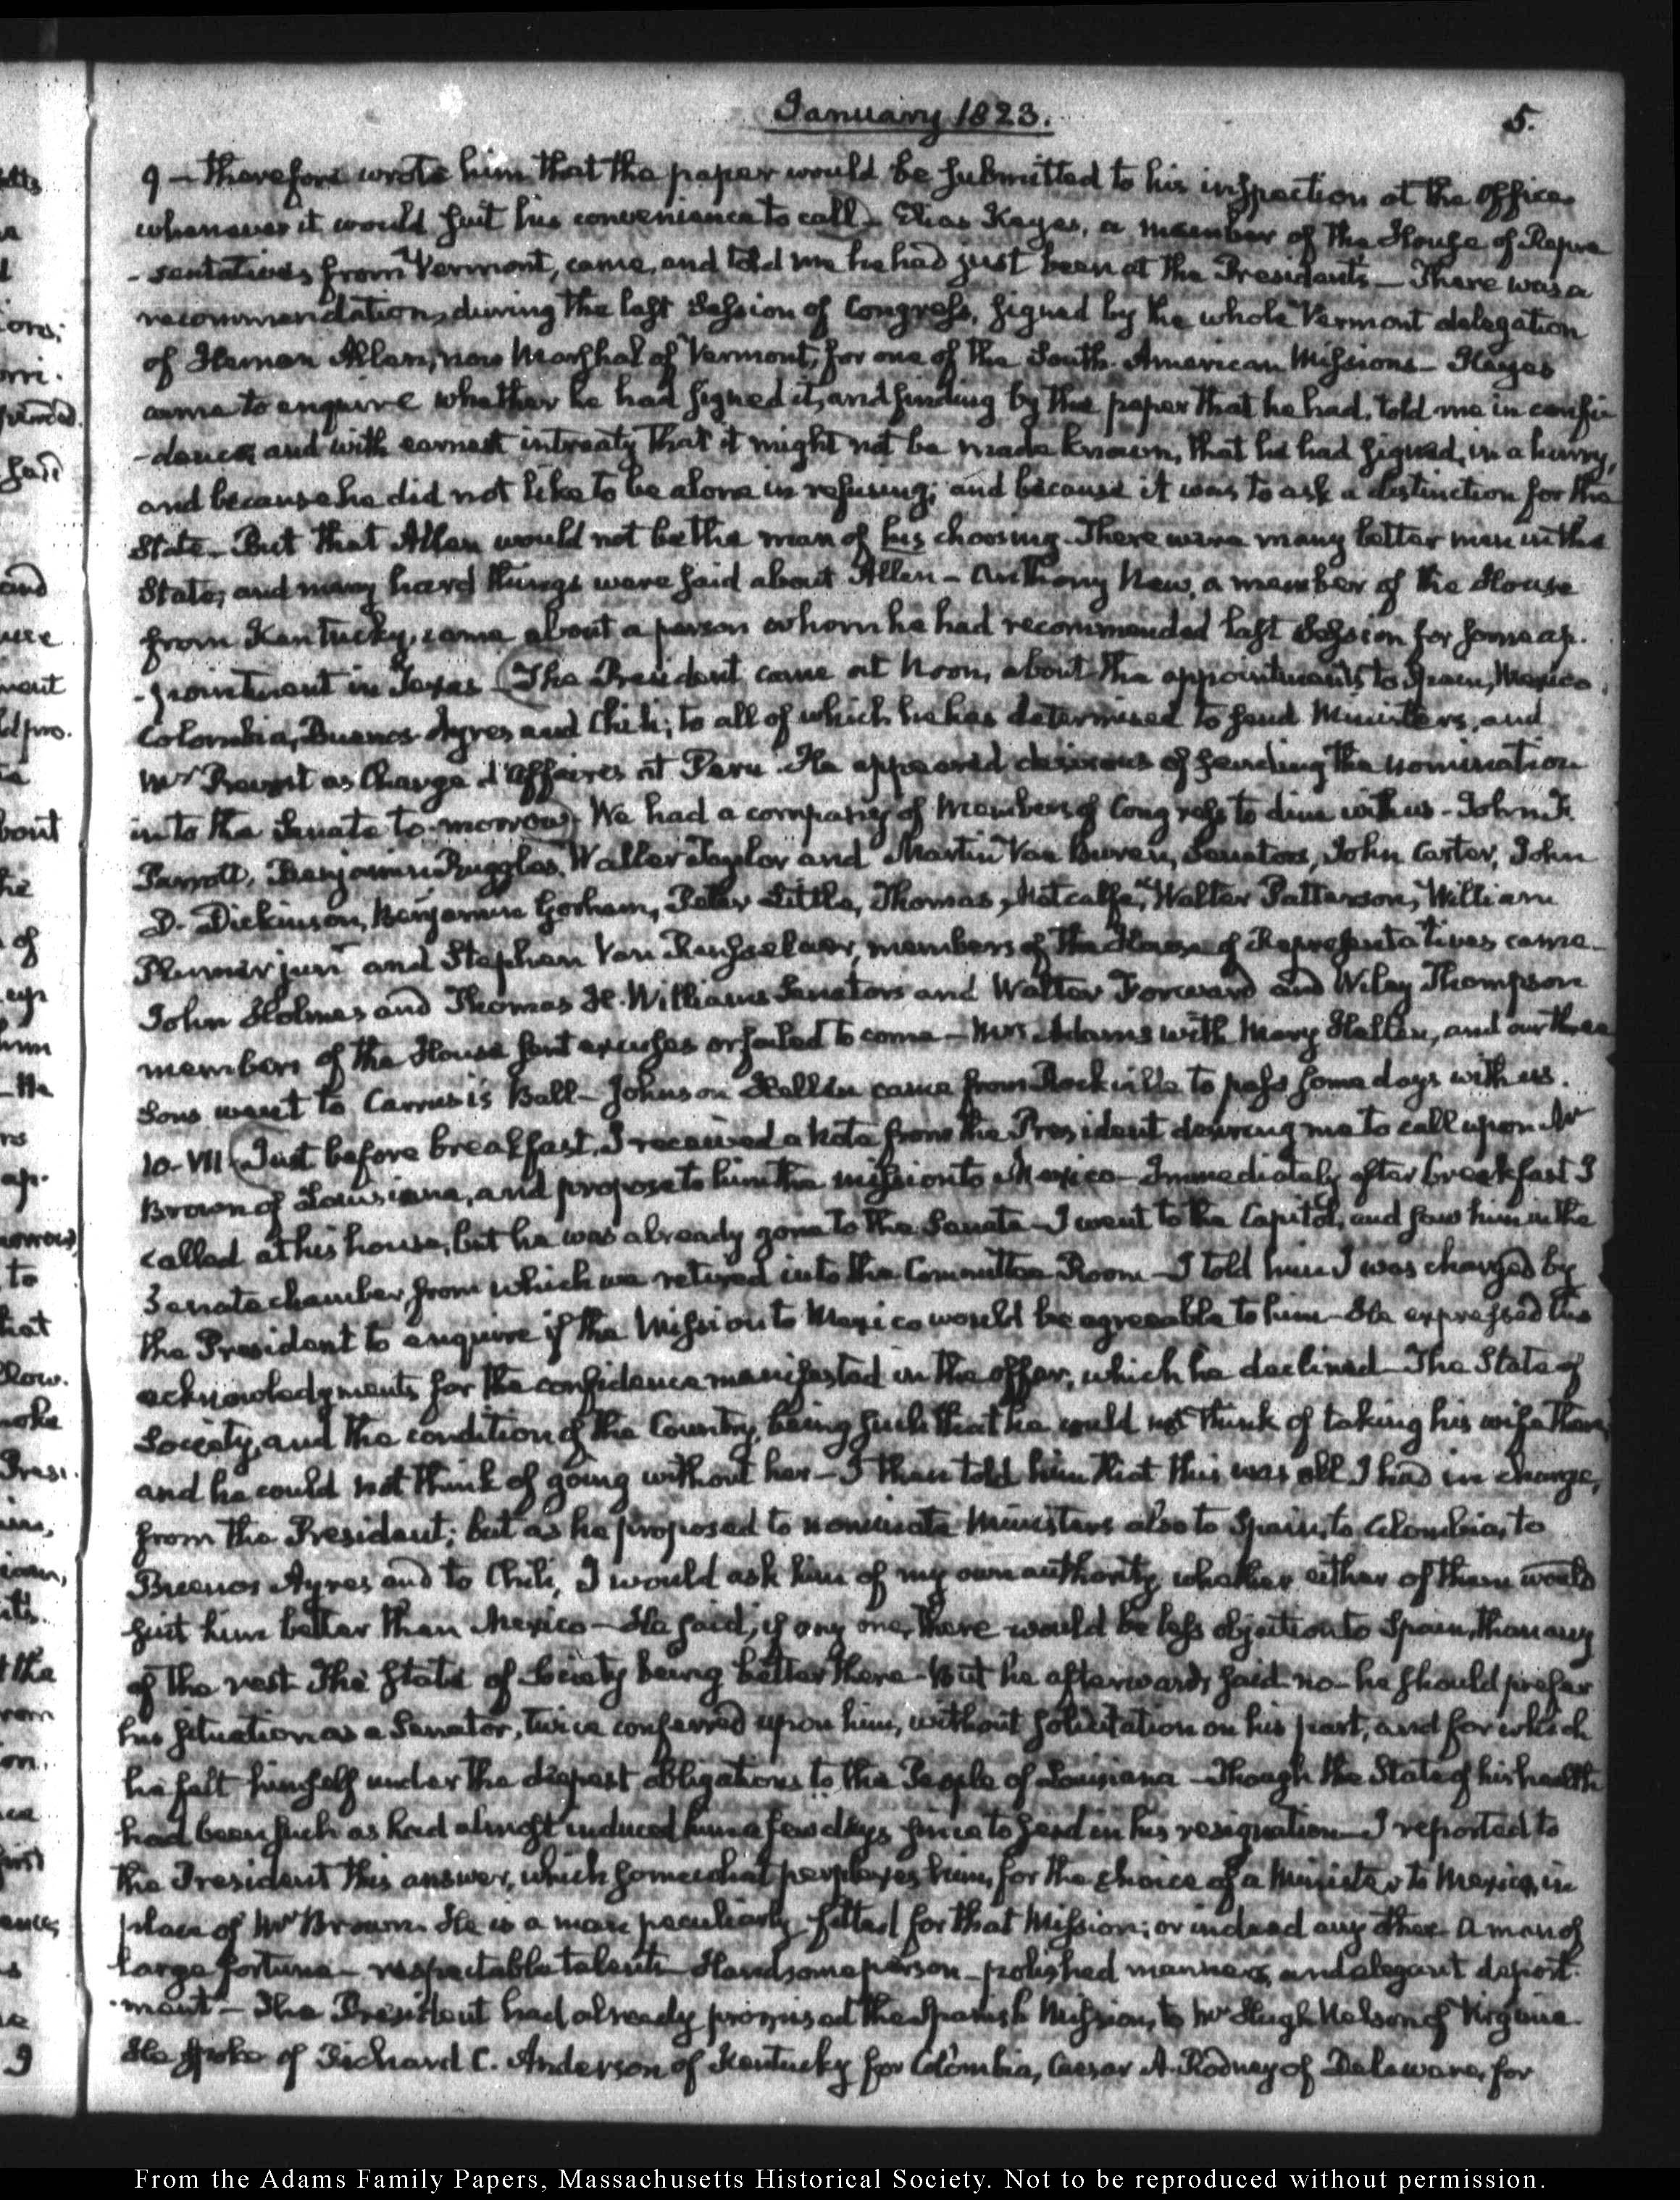 January 1823.
5.
9 — therefore wrote him that the paper would be submitted to his inspection at the Office
whenever it would suit his convenience to call — Elias Keyes, a member of the House of Repre
- sentatives from Vermont, came, and told me he had just been at the President's — There was a
recommendation, during the last Session of Congress, signed by the whole Vermont delegation
of Heman Allen, now Marshal of Vermont, for one of the South-American Missions — Keyes
came to enquire whether he had signed it, and finding by the paper that he had, told me in confi
- dence, and with earnest intreaty that it might not be made known, that he had signed, in a hurry,
and because he did not like to be alone in refusing; and because it was to ask a distinction for the
State — But that Allen would not be the man of his choosing. There were many better men in the
State, and many hard things were said about Allen — Anthony New, a member of the House
from Kentucky, came about a person whom he had recommended last Session for some ap.
- pointment in Texas — (The President came at Noon, about the appointments to Spain, Mexico,
Colombia, Buenos-Ayres, and Chili; to all of which he has determined to send Ministers, and
Mr Prevost as Chargé d'Affaires at Peru. He appeared desirous of sending the nomination
in to the Senate to-morrow) We had a company of Members of Congress to dine with us — John F.
Parrott, Benjamin Ruggles, Waller Taylor and Martin Van Buren, Senators, John Carter, John
D. Dickinson, Benjamin Gorham, Peter Little, Thomas Metcalfe, Walter Patterson, William
Plumer junr and Stephen Van Rensselaer, members of the House of Representatives came —
John Holmes and Thomas H. Williams Senators and Walter Forward and Wiley Thompson
members of the House sent excuses or failed to come — Mrs Adams with Mary Hellen, and our three
Sons went to Carusi's Ball — Johnson Hellen came from Rockville to pass some days with us.
10 - VII. (Just before breakfast, I received a Note from the President desiring me to call upon Mr
Brown of Louisiana, and propose to him the mission to Mexico — Immediately after breakfast I
called at his house, but he was already gone to the Senate — I went to the Capitol, and saw him in the
Senate chamber, from which we retired into the Committee Room — I told him I was charged by
the President to enquire if the Mission to Mexico would be agreeable to him — He expressed his
acknowledgments for the confidence manifested in the offer, which he declined — The State of
Society, and the condition of the Country, being such that he could not think of taking his wife there,
and he could not think of going without her — I then told him that this was all I had in charge,
from the President; but as he proposed to nominate Ministers also to Spain, to Colombia, to
Buenos Ayres and to Chili, I would ask him of my own authority whether either of them would
suit him better than Mexico — He said, if any one, there would be less objection to Spain, than any
of the rest. The state of Society being better there — But he afterwards said no — he should prefer
his situation as a Senator, twice conferred upon him, without solicitation on his part, and for which
he felt himself under the deepest obligations to the People of Louisiana — Though the State of his health
had been such as had almost induced him a few days since to send in his resignation — I reported to
the President this answer, which somewhat perplexes him, for the choice of a Minister to Mexico, in
place of Mr Brown. He is a man peculiarly fitted for that Mission; or indeed any other. A man of
large fortune — respectable talents — Handsome person — polished manners, and elegant deport.
- ment — The President had already promised the Spanish Mission, to Mr Hugh Nelson of Virginia
He spoke of Richard C. Anderson of Kentucky for Colombia, Caesar A. Rodney of Delaware, for
From the Adams Family Papers, Massachusetts Historical Society. Not to be reproduced without permission.